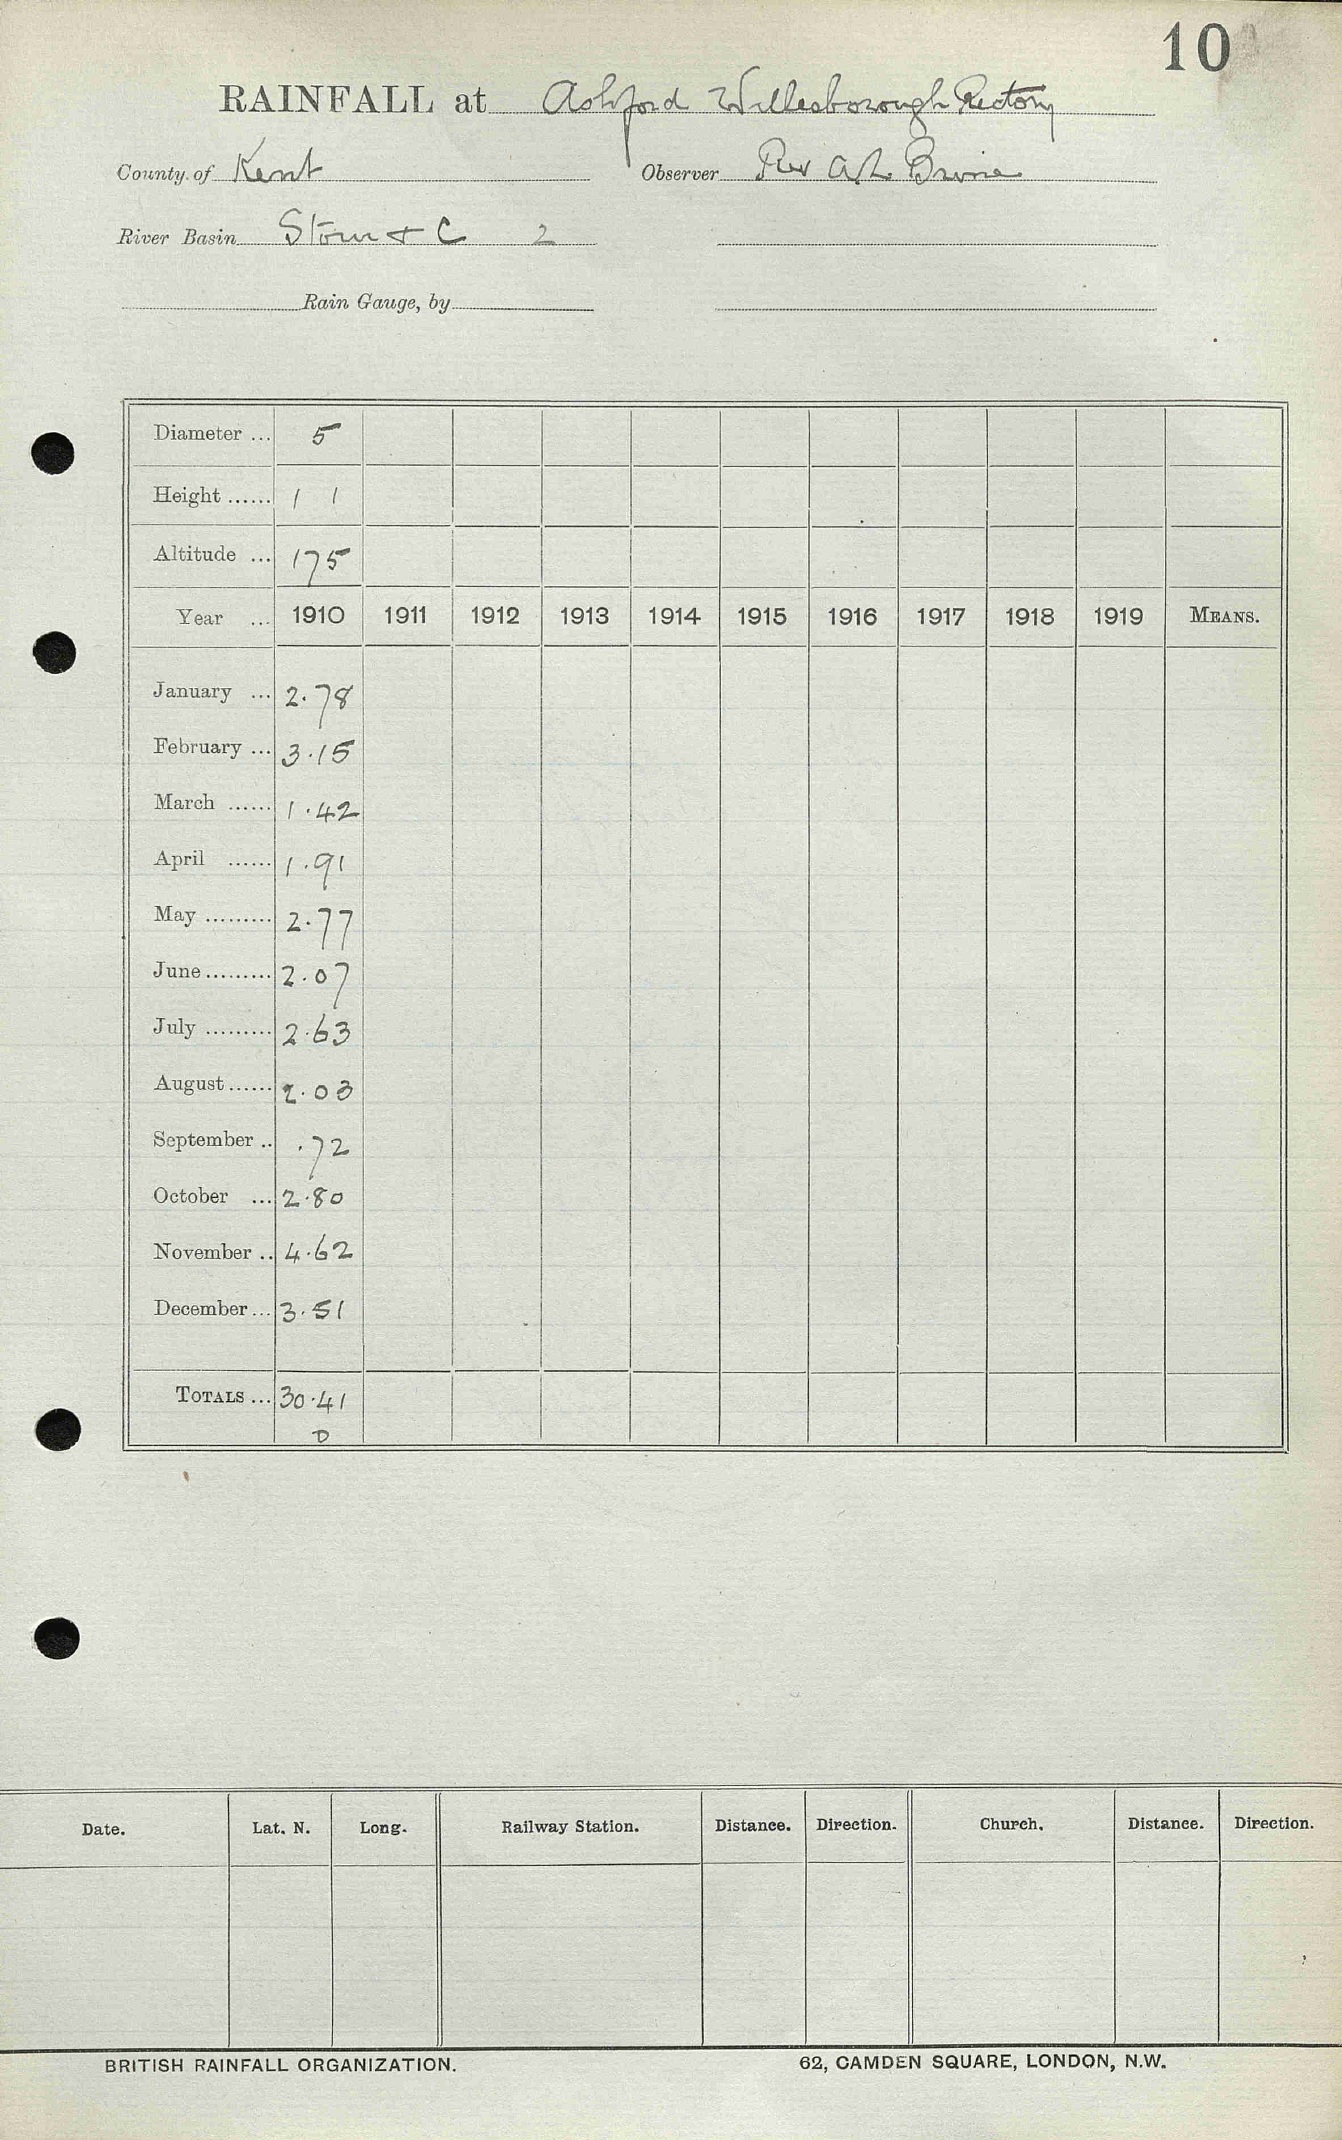 10
RAINFALL at Ashford Willesborough Rectory
County of Kent Observer Rev A L Brine
River Basin Stour & C 2
Rain Gauge, by
Diameter ... 5
Height ...... 1 1
Altitude ... 175
Year ... 1910 1911 1912 1913 1914 1915 1916 1917 1918 1919 MEANS.
January ... 2.78
February ... 3.15
March ...... 1.42
April ...... 1.91
May ......... 2.77
June ......... 2.07
July ......... 2.63
August ...... 2.03
September .. .72
October ... 2.80
November .. 4.62
December ... 3.51
TOTALS ... 30.41
D
Date. Lat. N. Long. Railway Station. Distance. Direction. Church. Distance. Direction.
BRITISH RAINFALL ORGANIZATION. 62, CAMDEN SQUARE, LONDON, N.W.